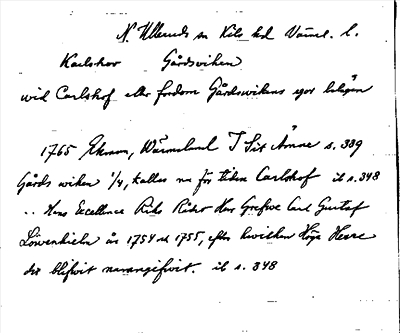 N. Ulleruds sn Kils hd Värml. l.
Karlshov Gårdsviken
wid Carlshof eller fordom Gårdswikens egor belägen
1765 Ekman, Wärmeland I Sit Ämne s. 339
Gårdswiken 1/4, kallas nu för tiden Carlshof ib s. 348
.. Hans Excellence Riks Rådet Herr Grefwe Carl Gustaf
Löwenhielm år 1754 och 1755, efter hwilken Höga Herre
det blifwit namngifwit. ib s. 348